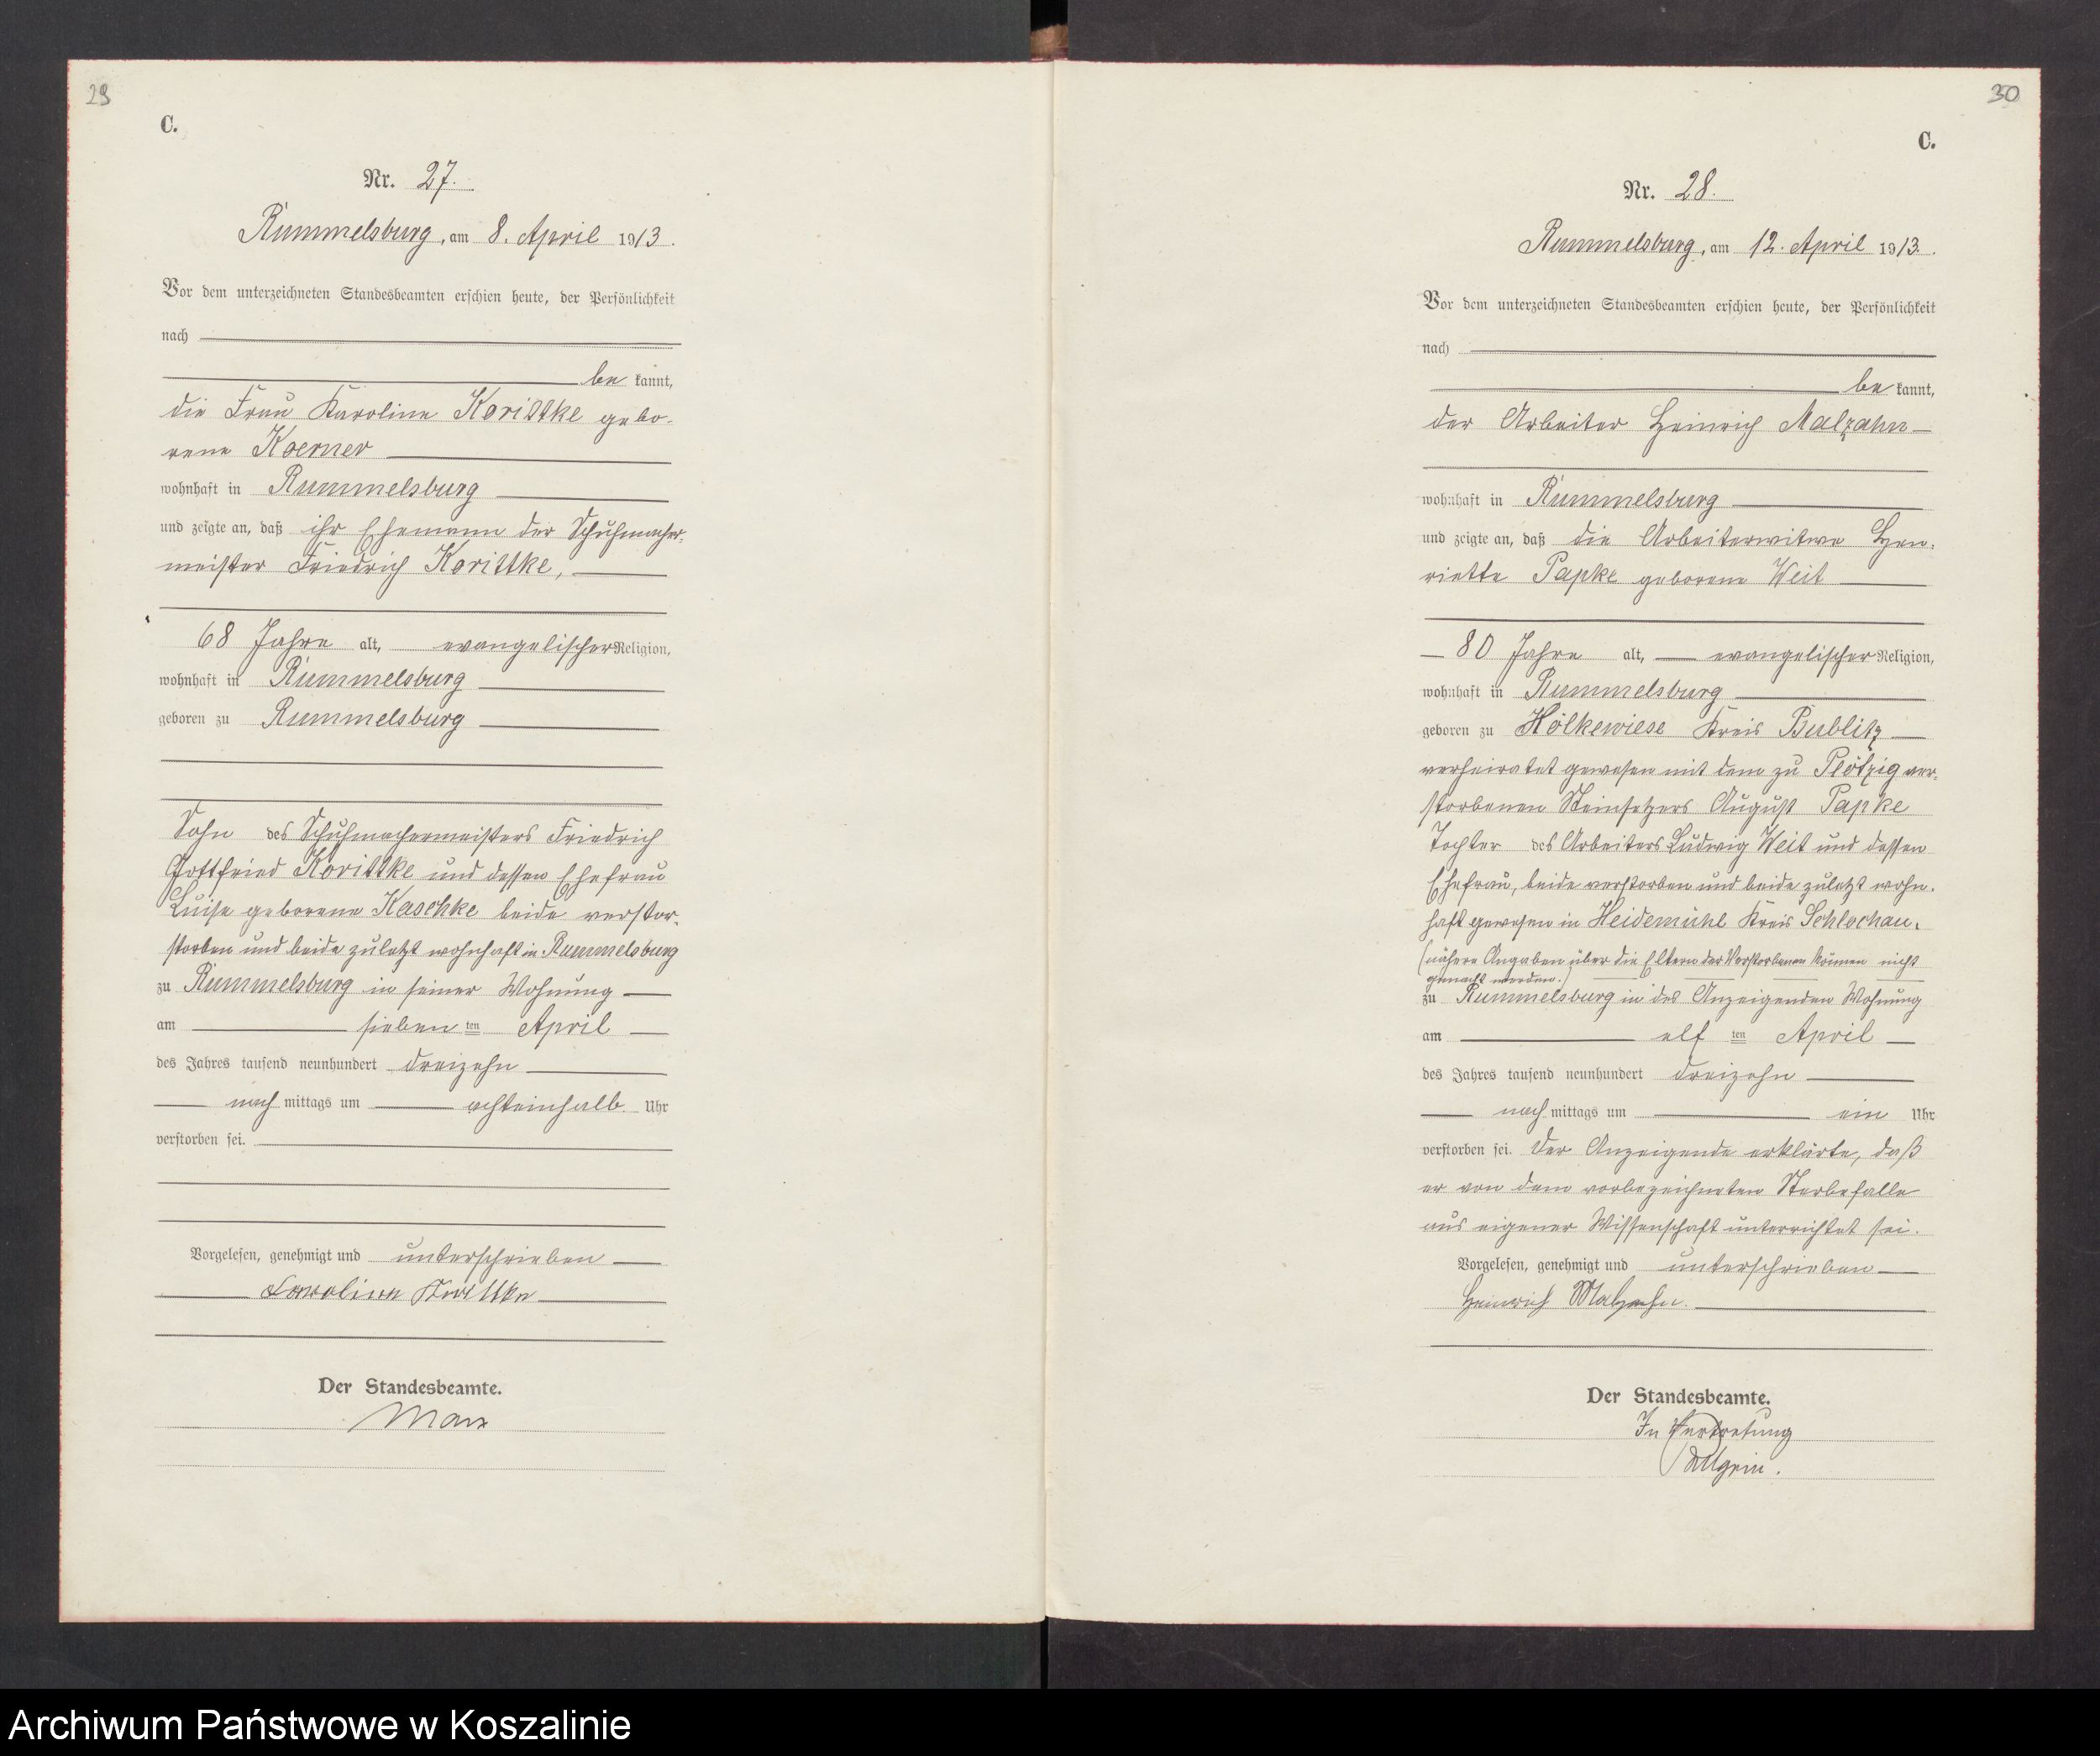 29
C.
Nr. 27.
Rummelsburg, am 8. April 1913.
Vor dem unterzeichneten Standesbeamten erschien heute, der Persönlichkeit
nach
be kannt,
die Frau Karoline Korittke gebo-
rene Koerner
wohnhaft in Rummelsburg
und zeigte an, daß ihr Ehemann der Schuhmacher-
meister Friedrich Korittke,
68 Jahre alt, evangelischer Religion,
wohnhaft in Rummelsburg
geboren zu Rummelsburg
Sohn des Schuhmachermeisters Friedrich
Gottfried Korittke und dessen Ehefrau
Luise geborene Kaschke beide verstor-
storben und beide zuletzt wohnhaft in Rummelsburg
zu Rummelsburg in seiner Wohnung
am sieben ten April
des Jahres tausend neunhundert dreizehn
nach mittags um achteinhalb Uhr
verstorben sei.
Vorgelesen, genehmigt und unterschrieben
Karoline Korittke
Der Standesbeamte.
Marx
30
C.
Nr. 28.
Rummelsburg, am 12. April 1913.
Vor dem unterzeichneten Standesbeamten erschien heute, der Persönlichkeit
nach
be kannt,
der Arbeiter Heinrich Malzahn
wohnhaft in Rummelsburg
und zeigte an, daß die Arbeiterwitwe Hen-
riette Papke geborene Weit
80 Jahre alt, evangelischer Religion,
wohnhaft in Rummelsburg
geboren zu Hölkewiese Kreis Bublitz
verheiratet gewesen mit dem zu Plötzig ver-
storbenen Steinsetzers August Papke
Tochter des Arbeiters Ludwig Weit und dessen
Ehefrau, beide verstorben und beide zuletzt wohn-
haft gewesen in Heidemühl Kreis Schlochau.
(nähere Angaben über die Eltern der Verstorbenen können nicht
gemacht werden.)
zu Rummelsburg in des Anzeigenden Wohnung
am elf ten April
des Jahres tausend neunhundert dreizehn
nach mittags um ein Uhr
verstorben sei. Der Anzeigende erklärte, daß
er von dem vorbezeichneten Sterbefalle
aus eigener Wissenschaft unterrichtet sei.
Vorgelesen, genehmigt und unterschrieben
Heinrich Malzahn.
Der Standesbeamte.
In Vertretung
Archiwum Państwowe w Koszalinie